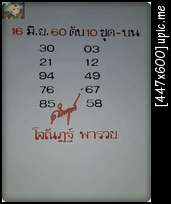 16 มิ.ย. 60 ดับ 10 ชุด-บน
30 03
21 12
94 49
76 67
85 58
โจณัฏฐ์ พารวย
[447x600] upic.me